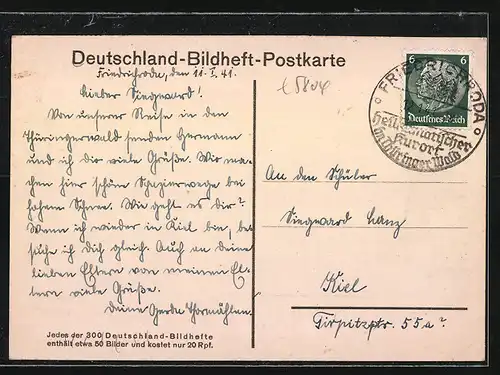 Deutschland-Bildheft-Postkarte
Friedrichroda, den 11. I. 41.
Lieber Siegward!
Von unserer Reise in den
Thüringerwald senden Hermann
und ich dir viele Grüße. Wir ma-
chen hier schöne Spazierwege bei
hohem Schnee. Wie geht es dir?
Wenn ich wieder in Kiel bin, be-
suche ich dich gleich. Auch an deine
lieben Eltern von meinen El-
tern viele Grüße.
Deine Gerda Thormählen.
Jedes der 300 Deutschland-Bildhefte
enthält etwa 50 Bilder und kostet nur 20 Rpf.
6 6
Deutsches Reich
FRIEDRICHRODA
heilklimatischer
Kurort
im Thüringer Wald
An den Schüler
Siegward
Kiel
Tirpitzstr. 55a